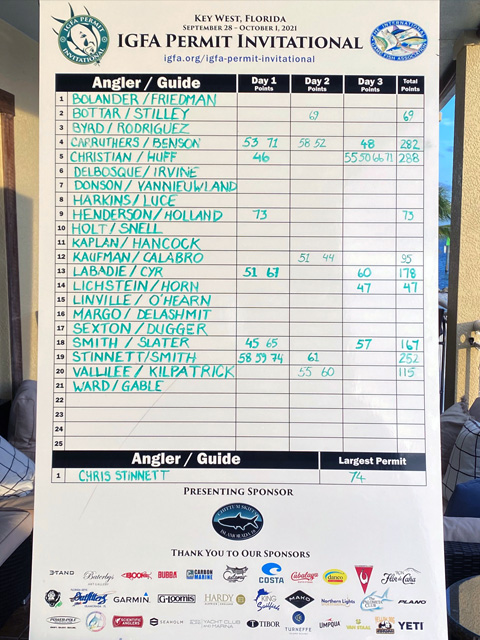 IGFA PERMIT INVITATIONAL
KEY WEST, FLORIDA
SEPTEMBER 28 - OCTOBER 1, 2021
IGFA PERMIT INVITATIONAL
igfa.org/igfa-permit-invitational
THE INTERNATIONAL GAME FISH ASSOCIATION
Angler / Guide Day 1 Points Day 2 Points Day 3 Points Total Points
1 BOLANDER / FRIEDMAN
2 BOTTAR / STILLEY 69 69
3 BYRD / RODRIGUEZ
4 CARRUTHERS / BENSON 53 71 58 52 48 282
5 CHRISTIAN / HUFF 46 55 50 66 71 288
6 DELBOSQUE / IRVINE
7 DONSON / VANNIEUWLAND
8 HARKINS / LUCE
9 HENDERSON / HOLLAND 73 73
10 HOLT / SNELL
11 KAPLAN / HANCOCK
12 KAUFMAN / CALABRO 51 44 95
13 LABADIE / CYR 51 67 60 178
14 LICHSTEIN / HORN 47 47
15 LINVILLE / O'HEARN
16 MARGO / DELASHMIT
17 SEXTON / DUGGER
18 SMITH / SLATER 45 65 57 167
19 STINNETT/SMITH 58 59 74 61 252
20 VALLILEE / KILPATRICK 55 60 115
21 WARD / GABLE
22
23
24
25
Angler / Guide Largest Permit
1 CHRIS STINNETT 74
PRESENTING SPONSOR
CHITTUM SKIFFS
ISLAMORADA
THANK YOU TO OUR SPONSORS
3TAND BUBBA CARBON MARINE COSTA Cabalaya danco Flor de Caña
Outfitters GARMIN G.Loomis HARDY KING Sailfish MAKO Northern Lights PLANO
POWER-POLE SCIENTIFIC ANGLERS SEAHOLM YACHT CLUB TIBOR TURNEFFE UMPQUA YETI